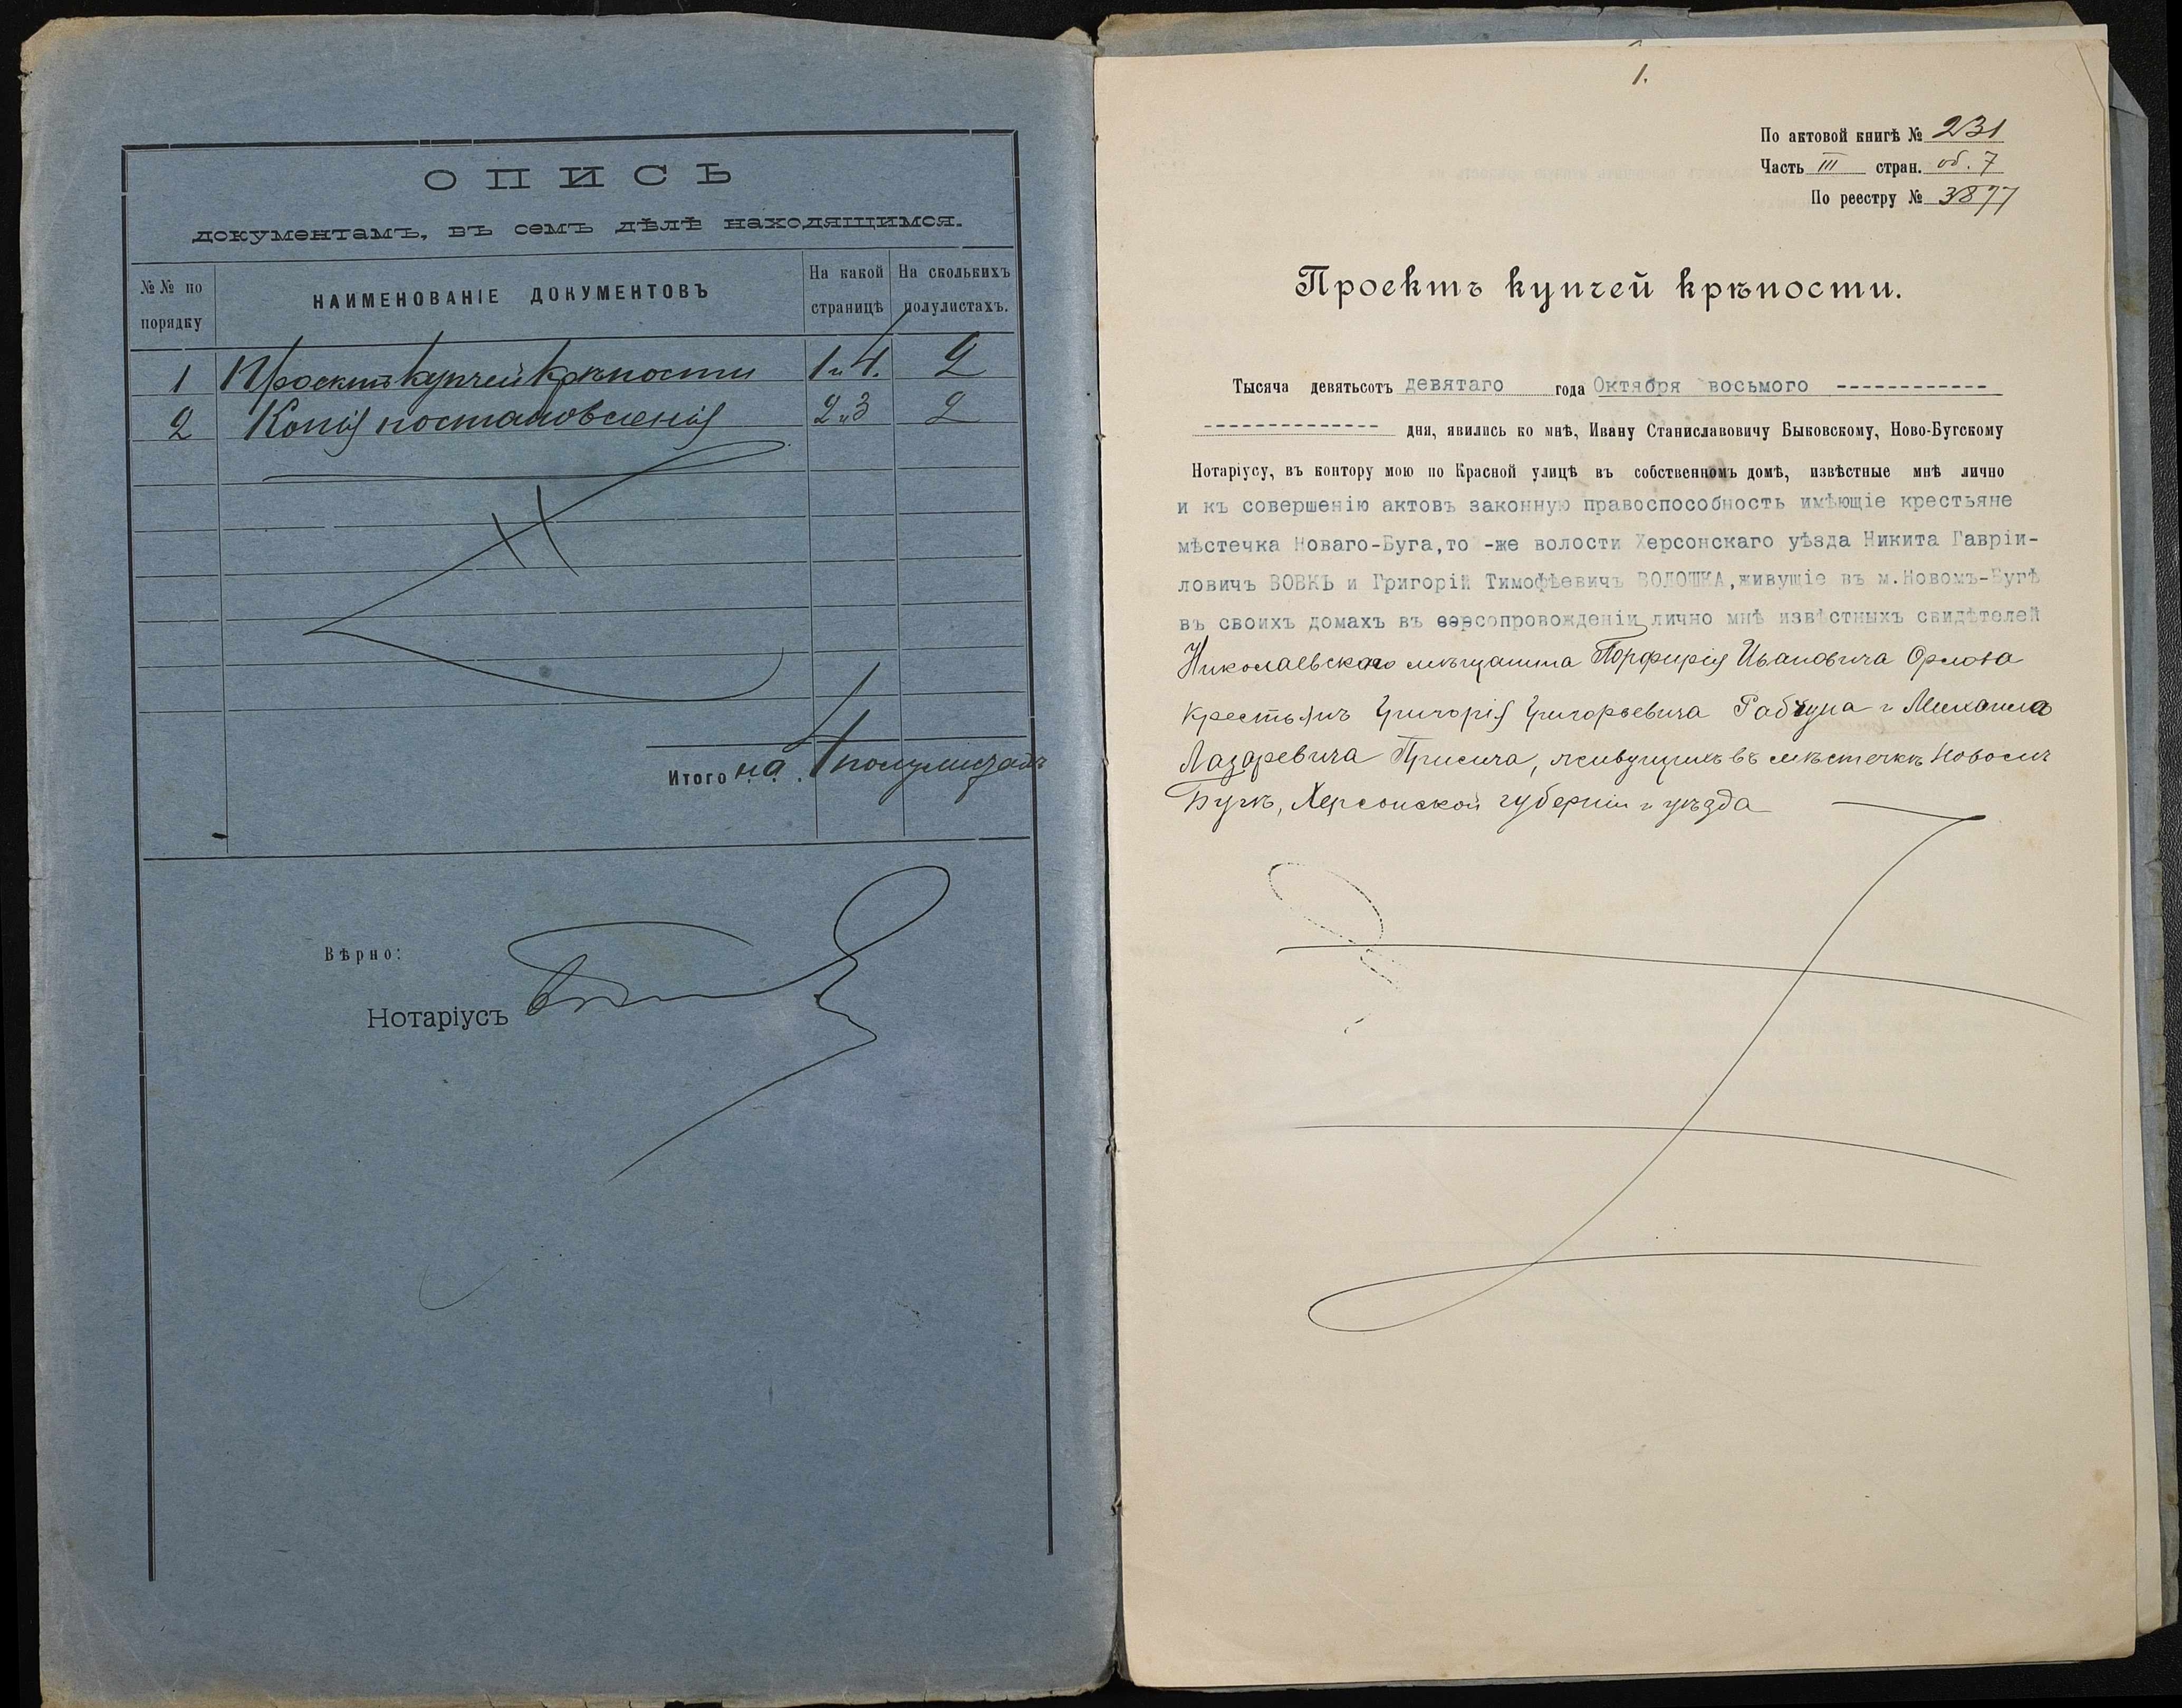 ОПИСЬ
документамъ, въ семъ дѣлѣ находящимся.
№№ по порядку
НАИМЕНОВАНІЕ ДОКУМЕНТОВЪ
На какой страницѣ
На сколькихъ полулистахъ.
1 Проектъ купчей крѣпости 1 и 4. 2
2 Копія постановленія 2 и 3 2
Итого на 4 полулистахъ
Вѣрно:
Нотаріусъ
1.
По актовой книгѣ № 231
Часть III стран. об. 7
По реестру № 3877
Проектъ купчей крѣпости.
Тысяча девятьсотъ девятаго года Октября восьмого ------------
-------------- дня, явились ко мнѣ, Ивану Станиславовичу Быковскому, Ново-Бугскому
Нотаріусу, въ контору мою по Красной улицѣ въ собственномъ домѣ, извѣстные мнѣ лично
и къ совершенію актовъ законную правоспособность имѣющіе крестьяне
мѣстечка Новаго-Буга,то -же волости Херсонскаго уѣзда Никита Гавріи-
ловичъ ВОВКЪ и Григорій Тимофѣевичъ ВОЛОШКА,живущіе въ м.Новомъ-Бугѣ
въ своихъ домахъ въ сопровожденіи лично мнѣ извѣстныхъ свидѣтелей
Николаевского мѣщанина Порфирія Ивановича Орлова
крестьянъ Григорія Григорьевича Рабчуна и Михаила
Лазаревича Присича, живущихъ въ мѣстечкѣ Новомъ
Бугѣ, Херсонской губерніи и уѣзда